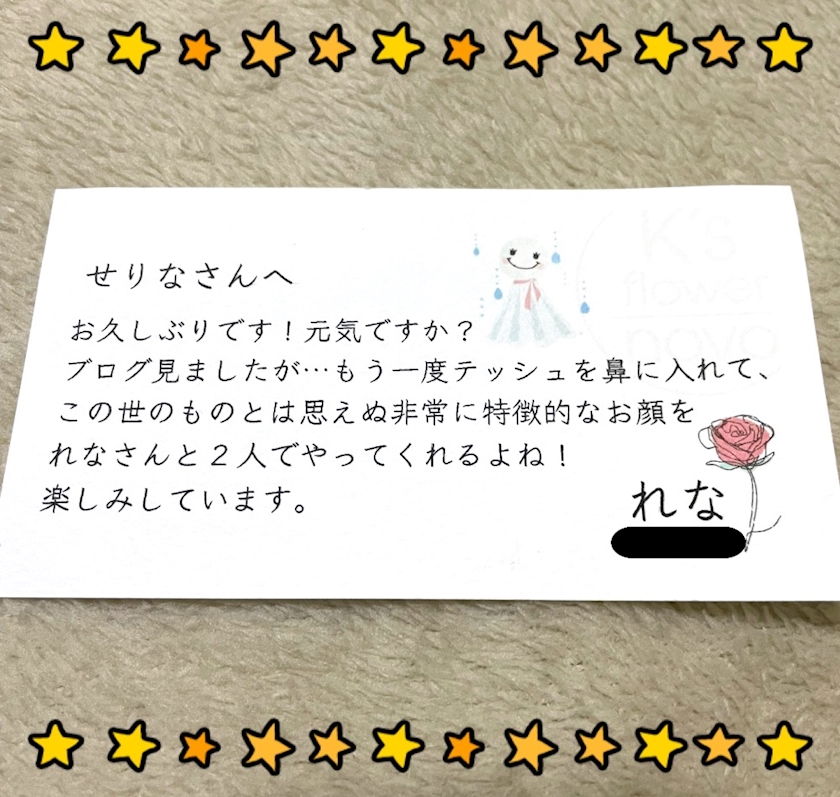 せりなさんへ
お久しぶりです！元気ですか？
ブログ見ましたが…もう一度テッシュを鼻に入れて、
この世のものとは思えぬ非常に特徴的なお顔を
れなさんと２人でやってくれるよね！
楽しみしています。
れな
K's
flower
novo